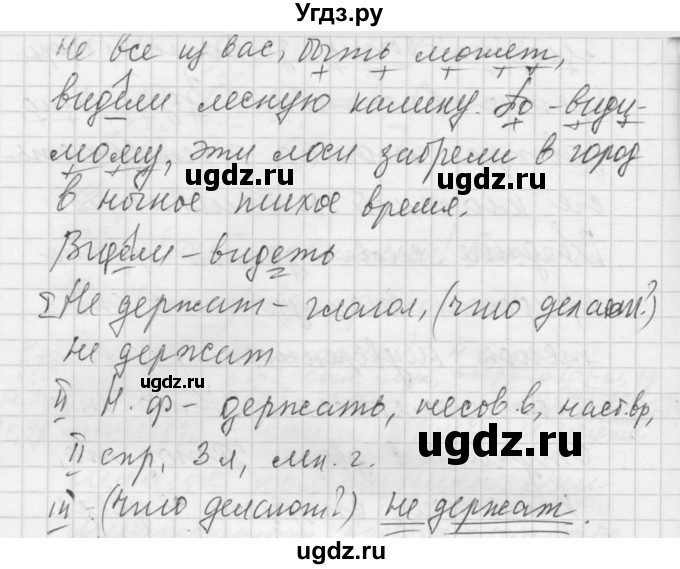 Угдз.ру
не все из вас, быть может,
видели лесную калину. По-види-
мому, эти лоси забрели в город
ugdz.ru ugdz.ru
в ночное тихое время.
Видели – видеть
I Не держат – глагол, (что делают?)
не держат
ugdz.ru
II Н.ф – держать, несов.в, наст.вр,
ugdz.ru
II спр, 3л, мн.г.
ugdz.ru
III (Что делают?) не держат.
ugdz.ru